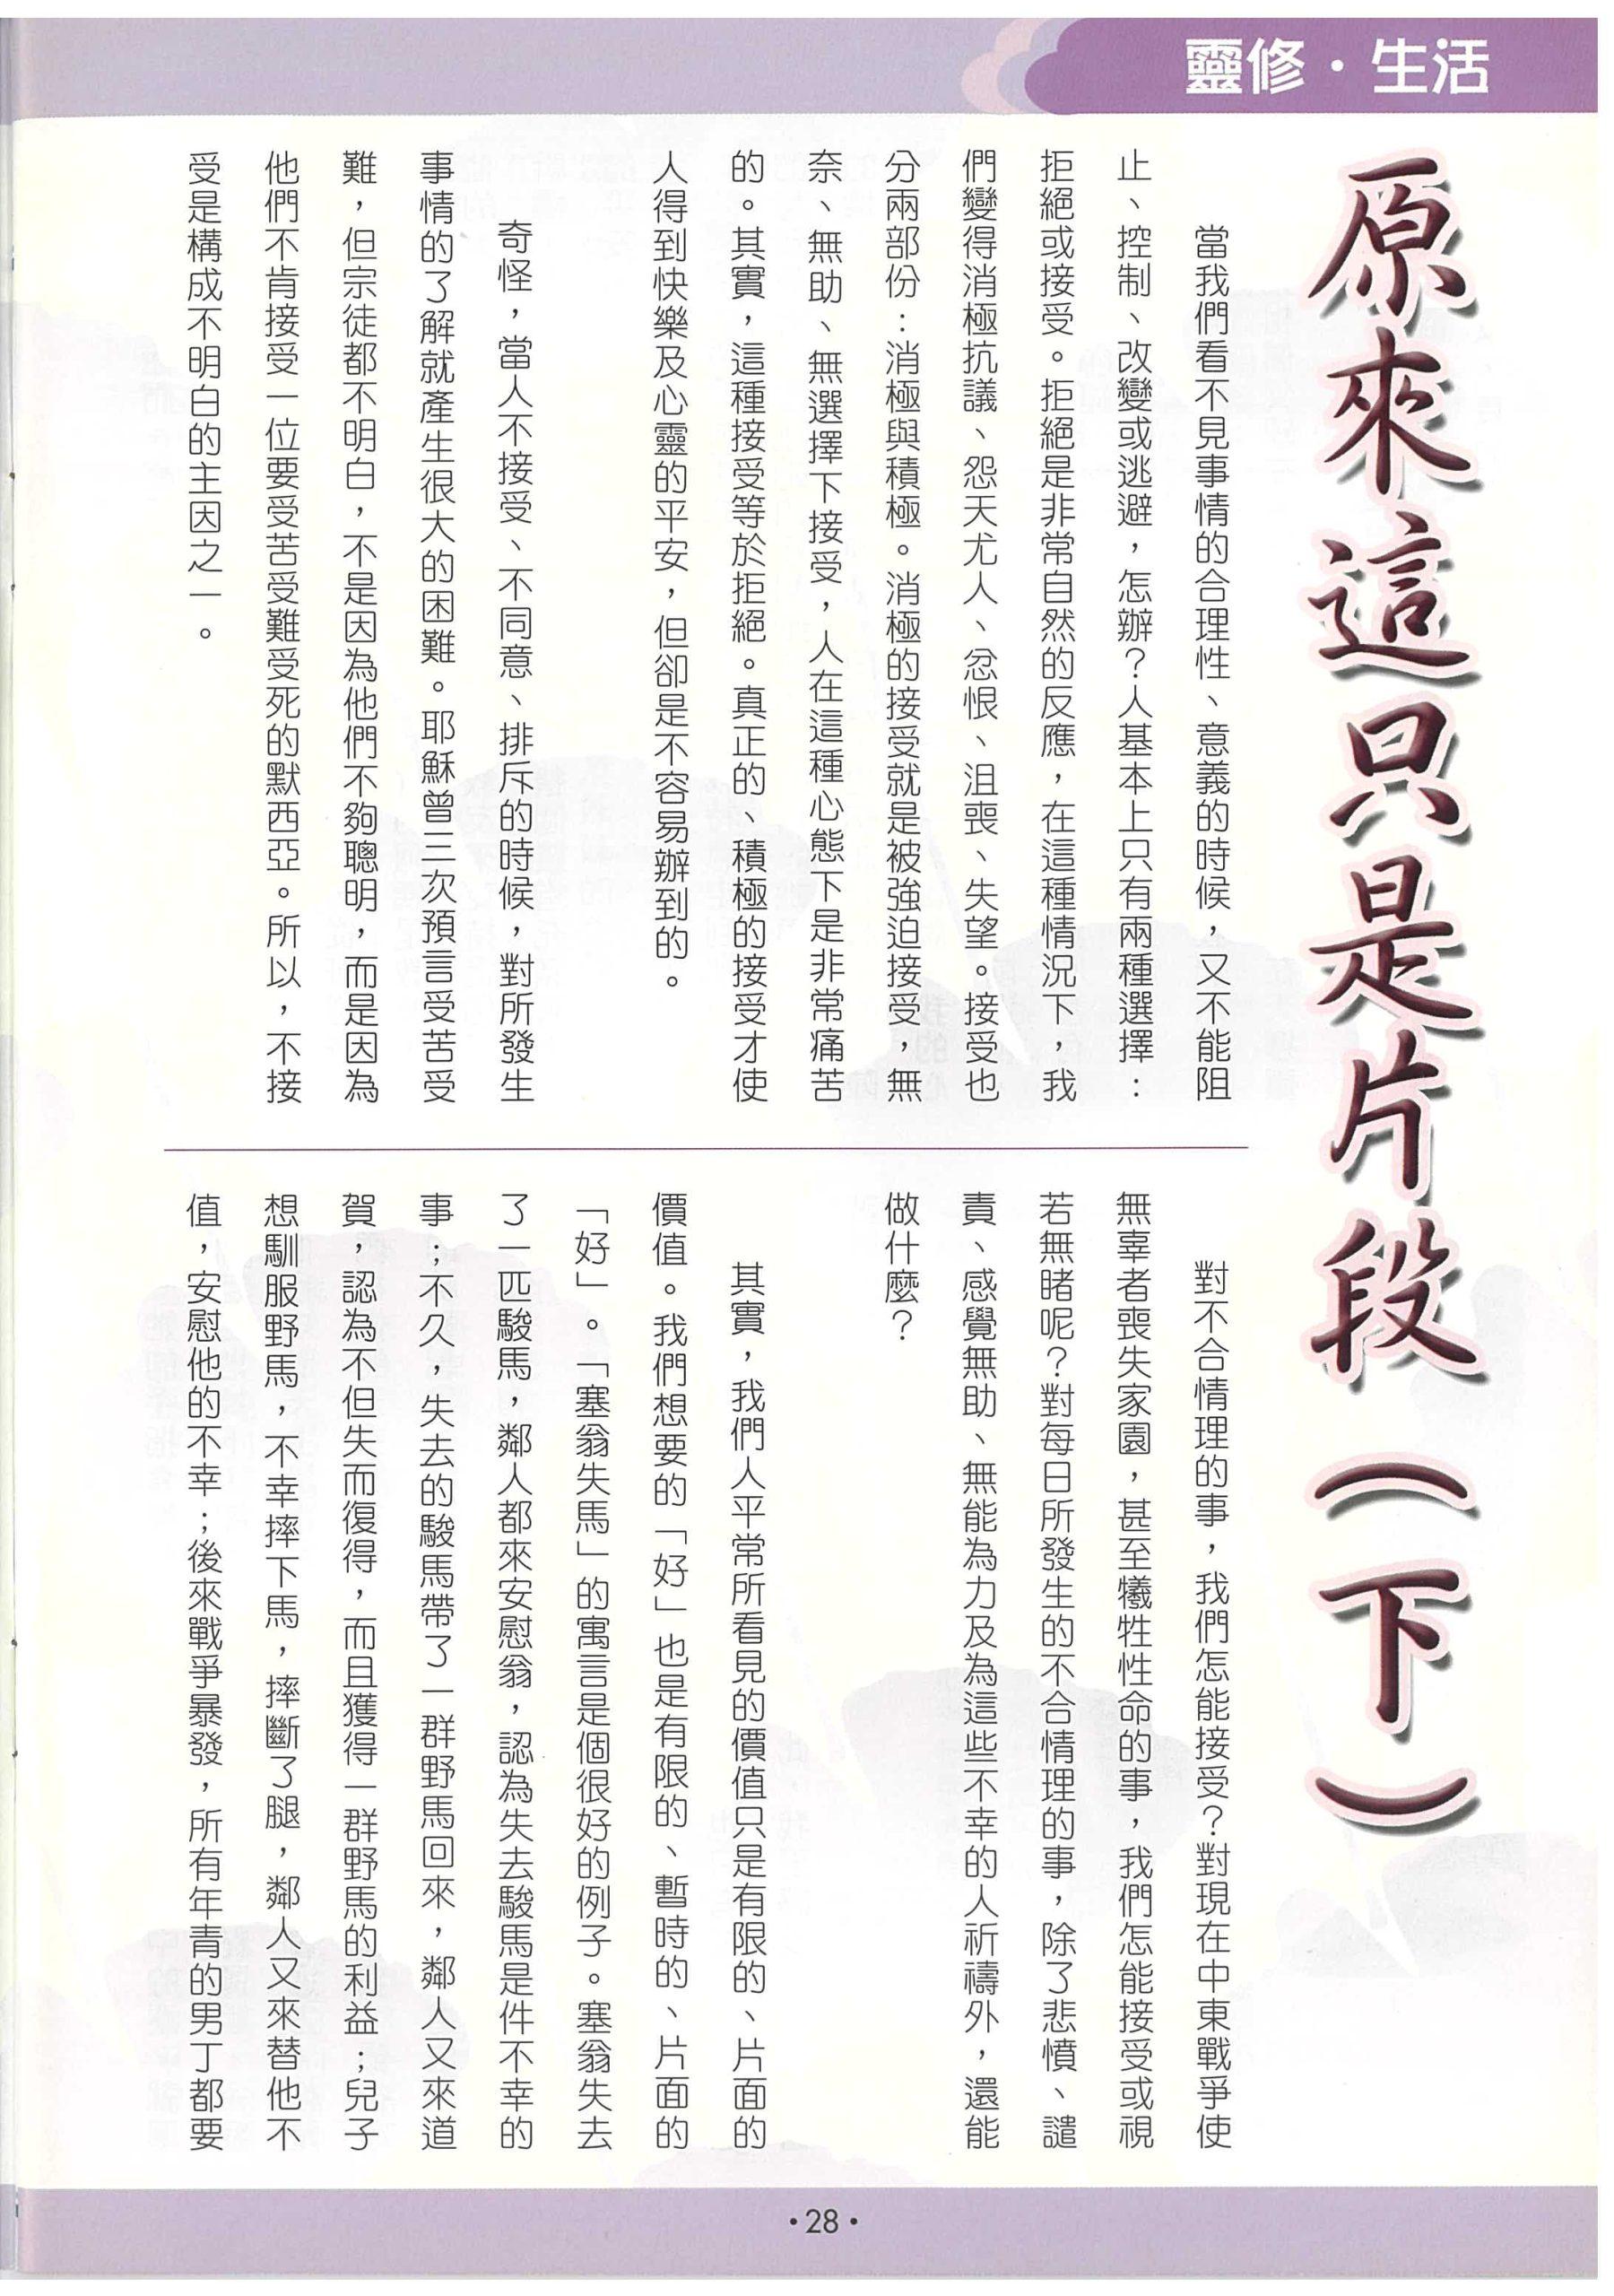 靈修・生活
原來這只是片段（下）
當我們看不見事情的合理性、意義的時候，又不能阻
止、控制、改變或逃避，怎辦？人基本上只有兩種選擇：
拒絕或接受。拒絕是非常自然的反應，在這種情況下，我
們變得消極抗議、怨天尤人、忿恨、沮喪、失望。接受也
分兩部份：消極與積極。消極的接受就是被強迫接受，無
奈、無助、無選擇下接受，人在這種心態下是非常痛苦
的。其實，這種接受等於拒絕。真正的、積極的接受才使
人得到快樂及心靈的平安，但卻是不容易辦到的。
奇怪，當人不接受、不同意、排斥的時候，對所發生
事情的了解就產生很大的困難。耶穌曾三次預言受苦受
難，但宗徒都不明白，不是因為他們不夠聰明，而是因為
他們不肯接受一位要受苦受難受死的默西亞。所以，不接
受是構成不明白的主因之一。
對不合情理的事，我們怎能接受？對現在中東戰爭使
無辜者喪失家園，甚至犧牲性命的事，我們怎能接受或視
若無睹呢？對每日所發生的不合情理的事，除了悲憤、譴
責、感覺無助、無能為力及為這些不幸的人祈禱外，還能
做什麼？
其實，我們人平常所看見的價值只是有限的、片面的
價值。我們想要的「好」也是有限的、暫時的、片面的
「好」。「塞翁失馬」的寓言是個很好的例子。塞翁失去
了一匹駿馬，鄰人都來安慰翁，認為失去駿馬是件不幸的
事；不久，失去的駿馬帶了一群野馬回來，鄰人又來道
賀，認為不但失而復得，而且獲得一群野馬的利益；兒子
想馴服野馬，不幸摔下馬，摔斷了腿，鄰人又來替他不
值，安慰他的不幸；後來戰爭暴發，所有年青的男丁都要
・28・